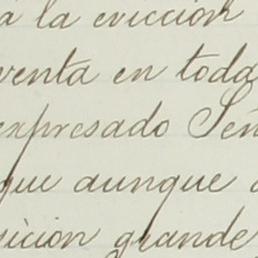 a la evicción
venta en toda
expresado Señ
que aunque a
sición grande